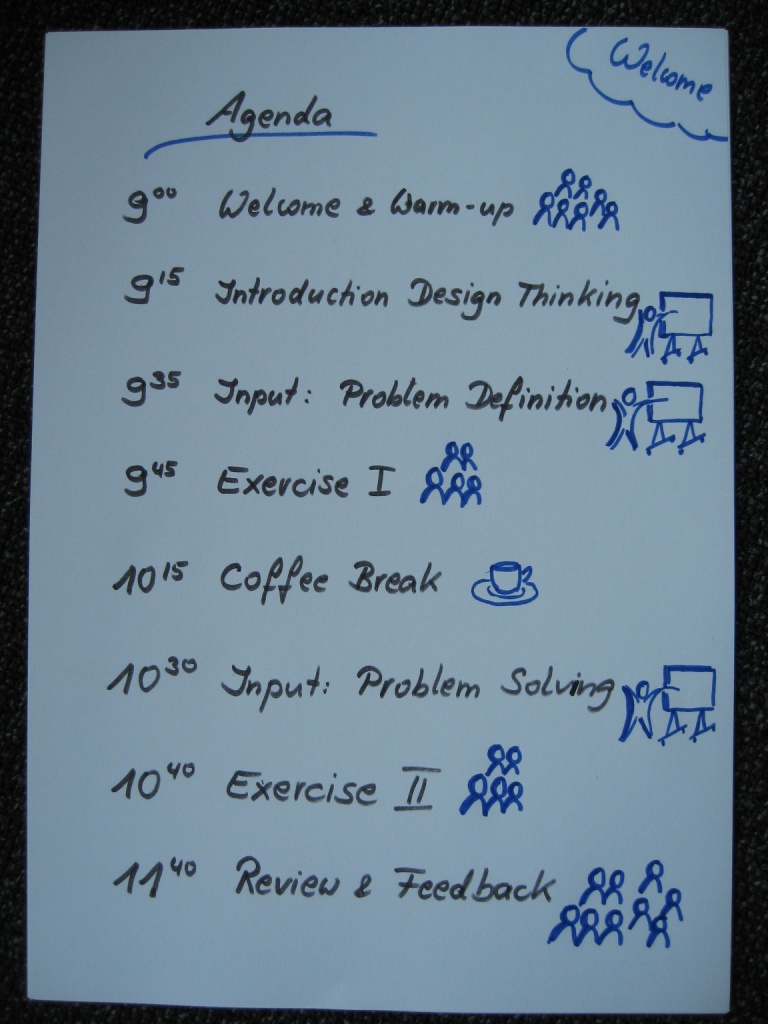 Welcome
Agenda
9⁰⁰ Welcome & Warm-up
9¹⁵ Introduction Design Thinking
9³⁵ Input: Problem Definition
9⁴⁵ Exercise I
10¹⁵ Coffee Break
10³⁰ Input: Problem Solving
10⁴⁰ Exercise II
11⁴⁰ Review & Feedback